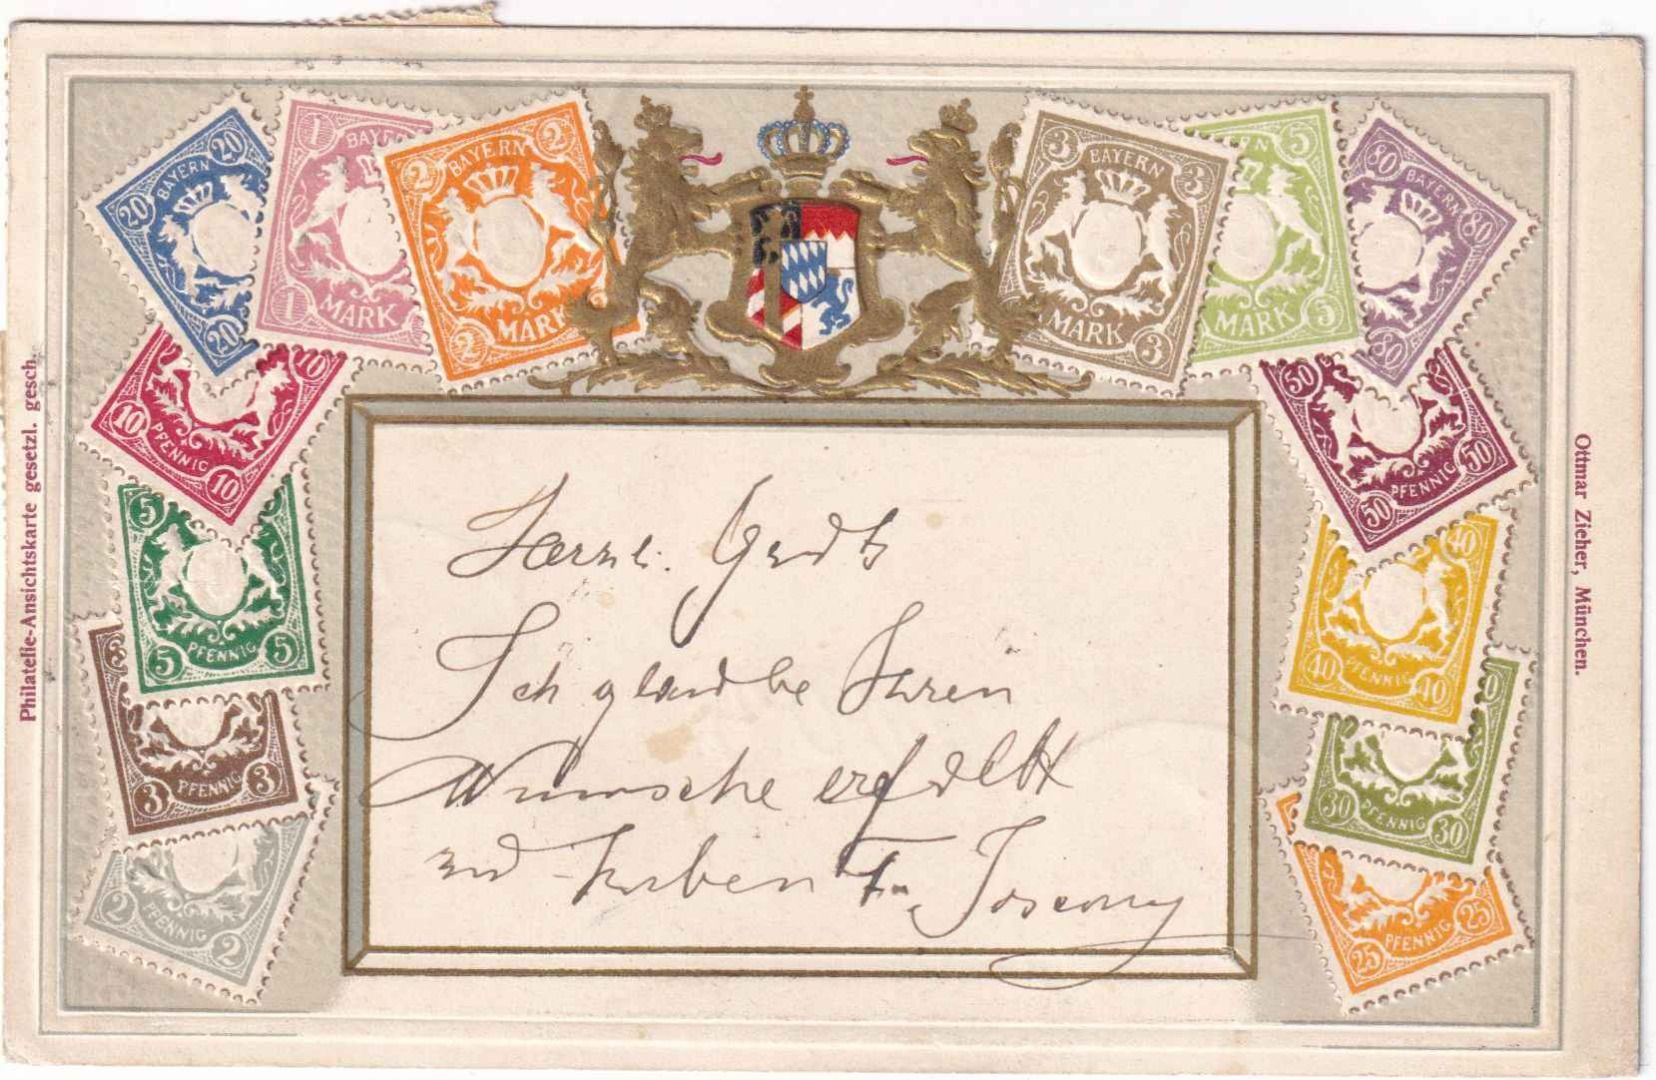 20 BAYERN 20 20
1 BAYERN 1 MARK
2 BAYERN 2 2 MARK
3 BAYERN 3 MARK 3
5 MARK 5
80 BAYERN 80 80
10 10 PFENNIG 10
50 50 PFENNIG 50
5 5 PFENNIG 5
40 40 PFENNIG 40
3 PFENNIG 3
30 PFENNIG 30
2 PFENNIG 2
25 PFENNIG 25
Philatelie-Ansichtskarte gesetzl. gesch.
Ottmar Zieher, München.
Ich glaube Ihren
Wunsche erfüllt
zu haben